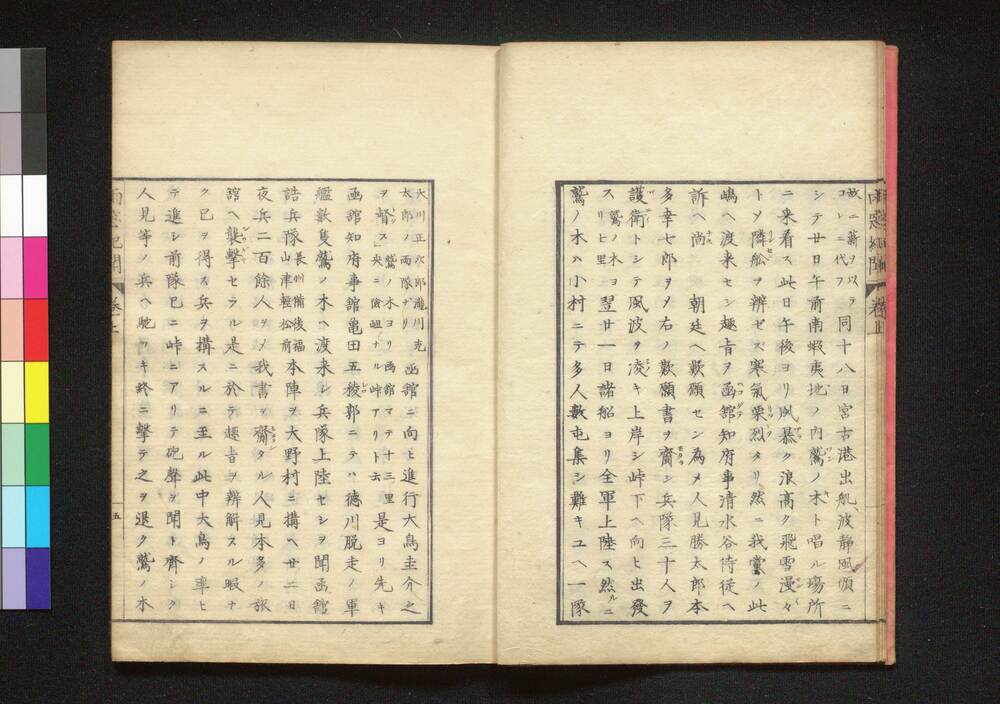 故ニ薪ヲ以ラ
コレニ代フ 同十八日宮古港出帆、波静風順ニ
シテ廿日午前南蝦夷地ノ内鷲ノ木ト唱ル場所
ニ来着ス此日午後ヨリ風暴ク浪高ク飛雪漫々
トメ隣船ヲ辨ゼズ寒氣栗烈タリ然ニ我黨ノ此
嶋ヘ渡来セシ趣旨ヲ函舘知府事清水谷侍従ヘ
訴ヘ尚 朝廷ヘ歎願セン為メ人見勝太郎本
多幸七郎ヲメ右ノ歎願書ヲ齎シ兵隊三十人ヲ
護衛トシテ風波ヲ凌キ上岸シ峠下ヘ向ヒ出發
ス 鷲ノ木ヨリ七里 翌廿一日諸船ヨリ全軍上陸ス然ルニ
鷲ノ木ハ小村ニテ多人數屯集シ難キユヘ一隊
雨窓紀聞 巻上
大川正次郎瀧川充
太郎ノ両隊ナリ 函舘ニ向ヒ進行大鳥圭介之
ヲ督ス 鷲ノ木ヨリ函舘マテ十三里
央ニ險岨ナル峠アリト云 是ヨリ先キ
函舘知府事舘亀田五稜郭ニテハ徳川脱走ノ軍
艦數隻鷲ノ木ヘ渡来シ兵隊上陸セシヲ聞函舘
誥兵隊 長州備後福
山津軽松前 本陣ヲ大野村ニ構ヘ廿二日
夜兵二百餘人ヲメ我書ヲ齎タル人見本多ノ旅
舘ヘ襲撃セラル是ニ於テ趣旨ヲ辨解スル暇ナ
ク已ヲ得ス兵ヲ搆スルニ至ル此中大鳥ノ率ヒ
テ進シ前隊已ニ峠ニアリテ砲聲ヲ聞ト齊シク
人見等ノ兵ヘ馳ツキ終ニ撃テ之ヲ退ク鷲ノ木
雨窓紀聞 巻上 五